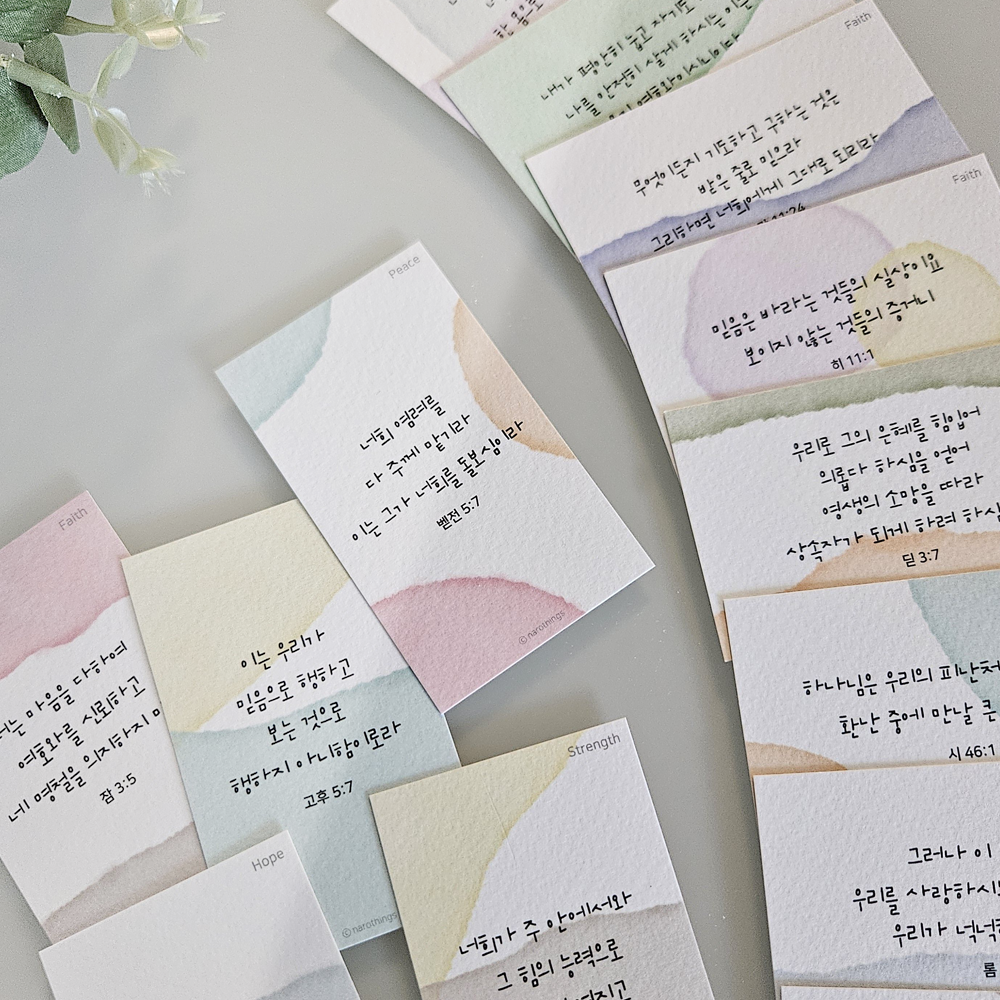 내가 평안히 눕고 자기도
나를 안전히 살게 하시는 이는
Faith
무엇이든지 기도하고 구하는 것은
받은 줄로 믿으라
그리하면 너희에게 그대로 되리라
11:24
Faith
믿음은 바라는 것들의 실상이요
보이지 않는 것들의 증거니
히 11:1
우리로 그의 은혜를 힘입어
의롭다 하심을 얻어
영생의 소망을 따라
상속자가 되게 하려 하심
딛 3:7
하나님은 우리의 피난처
환난 중에 만날 큰
시 46:1
그러나 이
우리를 사랑하시
우리가 넉넉
롬
Peace
너희 염려를
다 주께 맡기라
이는 그가 너희를 돌보심이라
벧전 5:7
ⓒnarothings
Faith
너는 마음을 다하여
여호와를 신뢰하고
네 명철을 의지하지
잠 3:5
이는 우리가
믿음으로 행하고
보는 것으로
행하지 아니함이로라
고후 5:7
ⓒnarothings
Hope
Strength
너희가 주 안에서와
그 힘의 능력으로